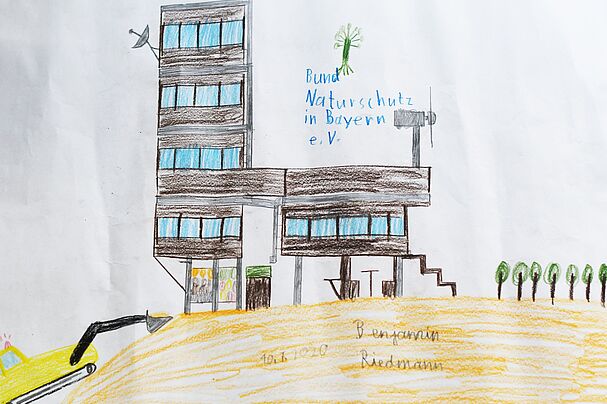 Bund
Naturschutz
in Bayern
e.V.
Benjamin
Riedmann
10.1.2020